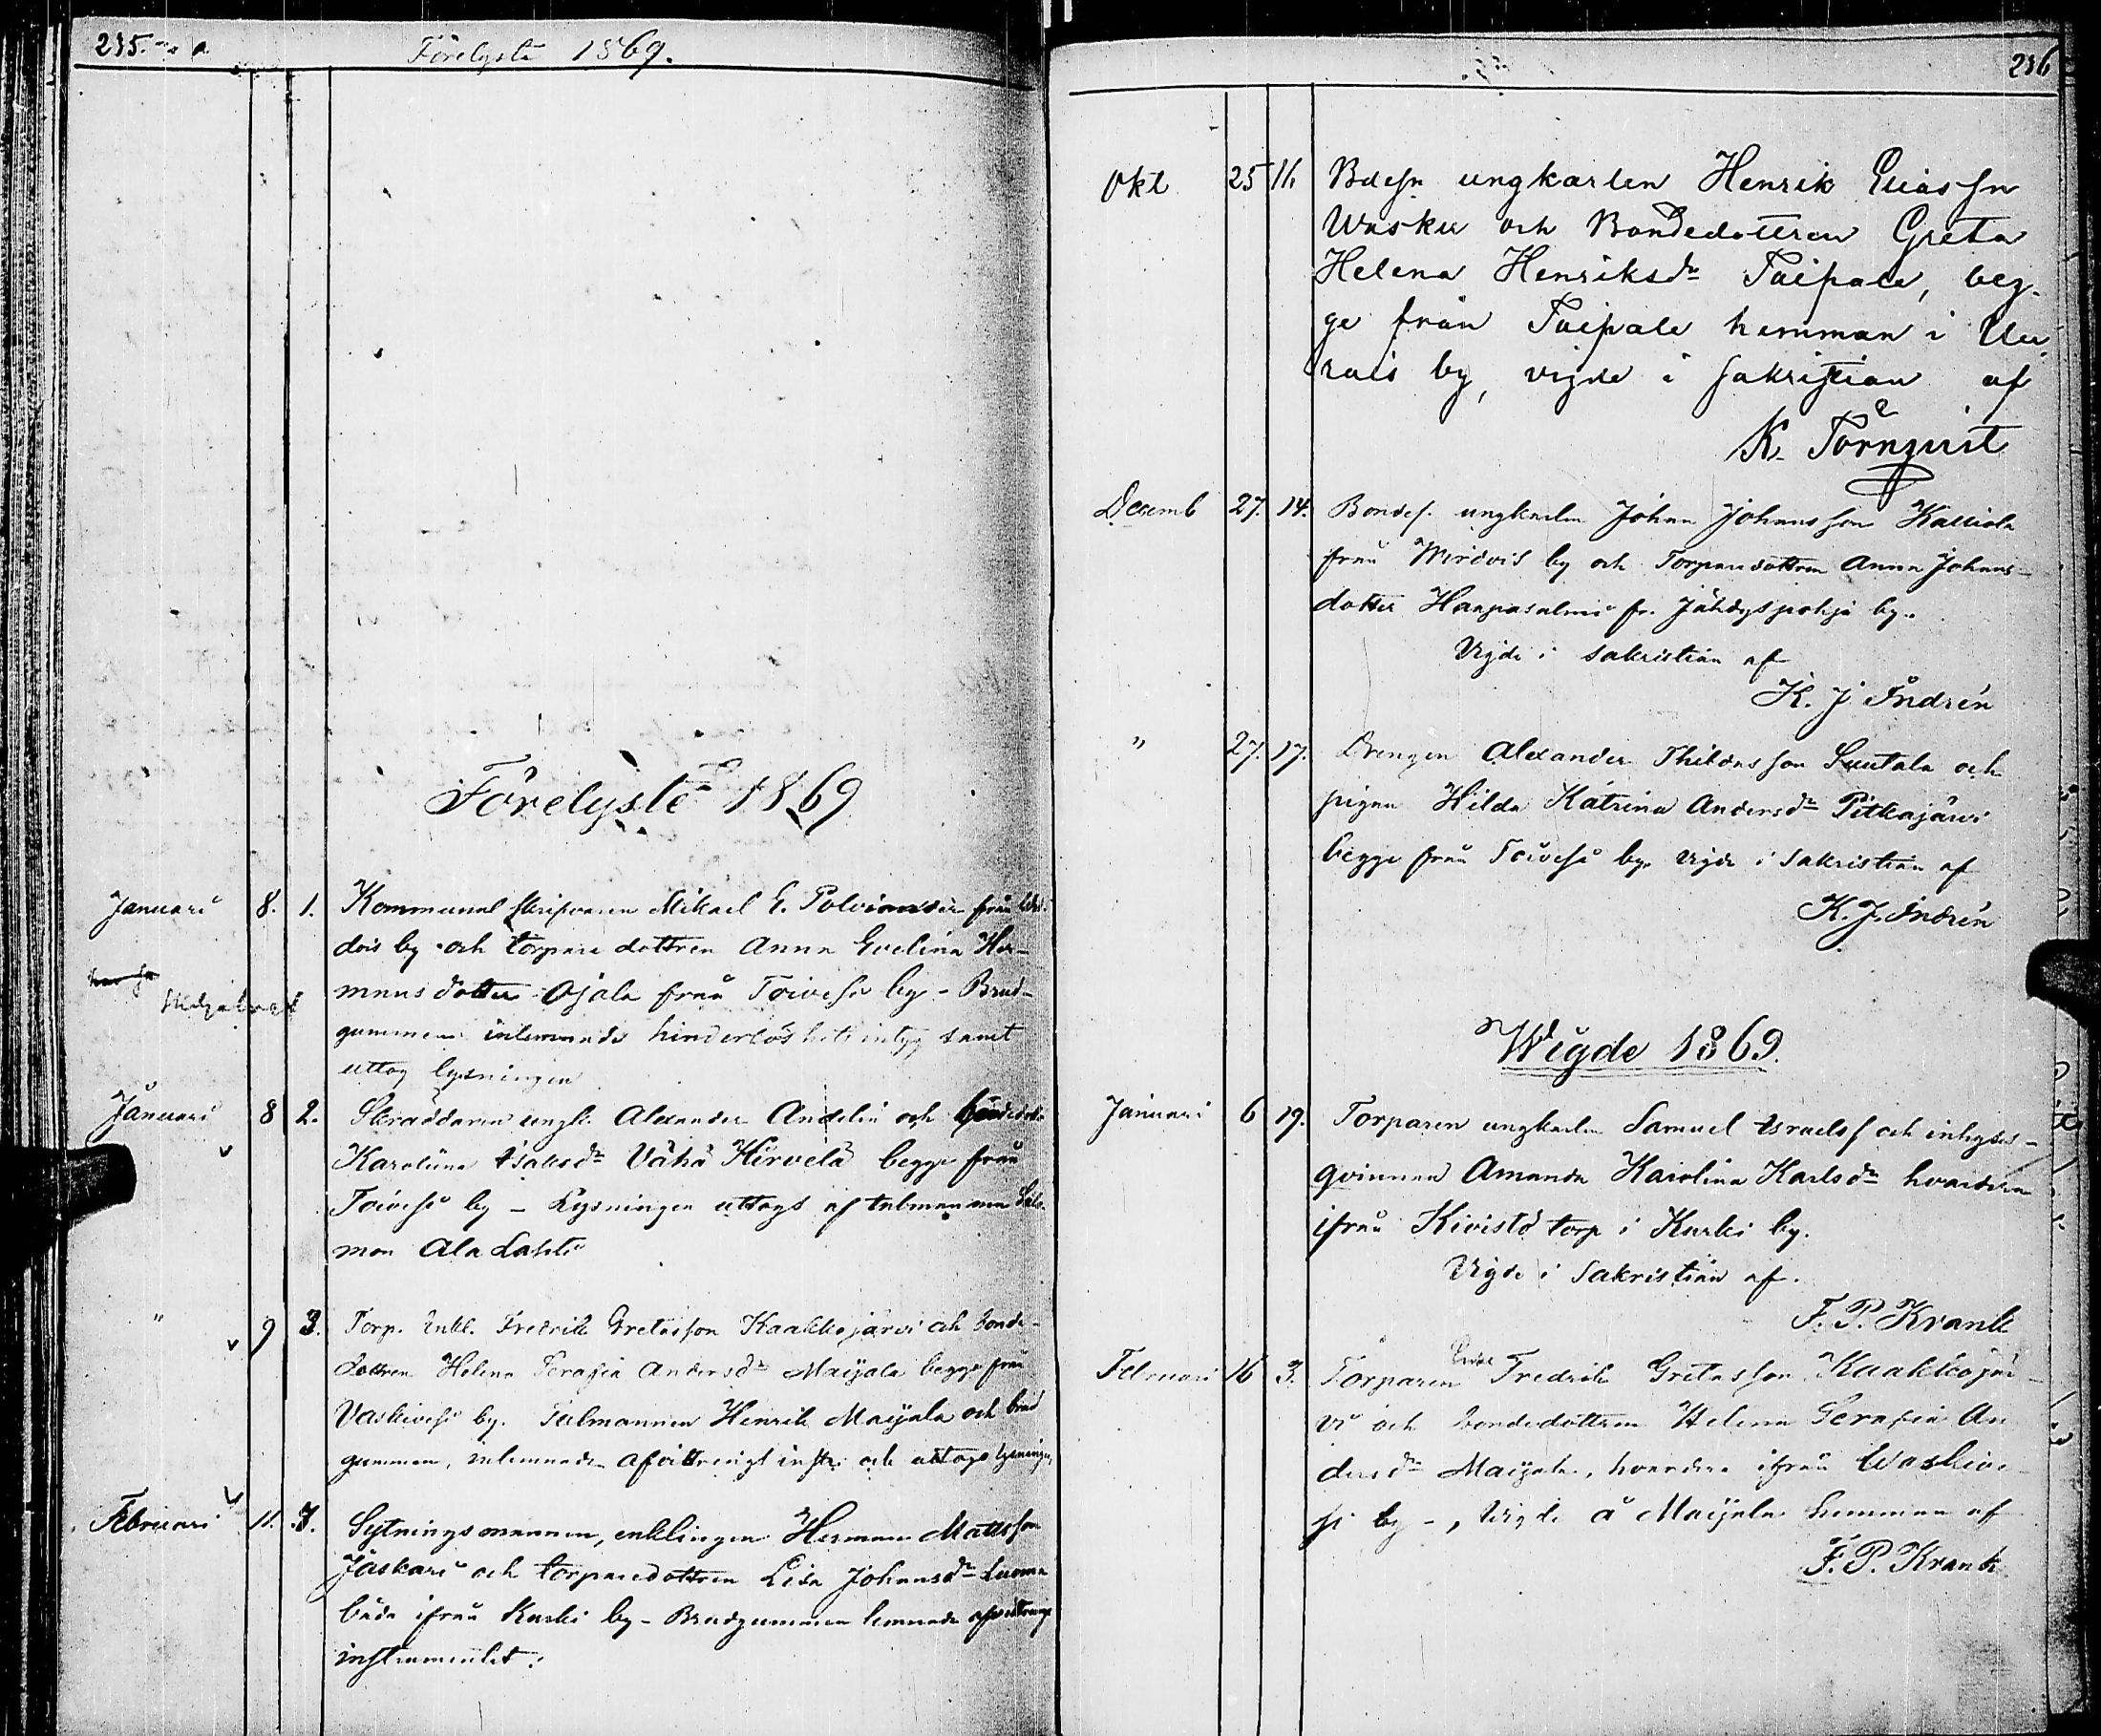 235.
Förelyste 1869.
Förelyste 1869
Januari 8. 1. Kommunal skrifvaren Mikael E. Polviander från
dois by och torpare dottren Anna Evelina Her-
mnus dotter Ojala från Toivesi by - Brud-
gummen inlemnade hinderlöshets intyg samt
uttog lysningen
Januari 8 2. Skräddaren ungk. Alexander Andelin och bondedott
Karolina Isaksdr Vähä Hirvelä begge från
Toivesi by - Lysningen uttogs af talmannen Salo-
mon Ala Lahti
" 9 3. Torp. Enkl. Fredrik Gretasson Kaakkojärvi och bonde-
dottren Helena Serafia Andersdr Maijala begge från
Vaskivesi by. Talmannen Henrik Maijala och brud
gummen, inlemnade afvittringsinstr. och uttogs lysningen
Februari 11. 7. Sytningsmannen, enklingen Herman Mattsson
Jäskari och torparedottren Lisa Johansdr Luoma
båda ifrån Kurki by - Brudgummen lemnade afvittrings
instrumentet.
236
Okt 25 11. Bdesn ungkarlen Henrik Eliassn
Wasku och Bondedottren Greta
Helena Henriksdr Taipale, beg-
ge från Taipale hemman i Üu
rais by, vigde i sakristian af
K. Törnqvist
Decemb 27. 14. Bondes. ungkarlen Johan Johansson Kalliola
från Wirdois by och Torparedottren Anna Johans-
dotter Haapasalmi fr. Jähdyspohja by.
Vigde i sakristian af
K. J Indrén
" 27. 17. Drengen Alexander Thildasson Suutala och
pigan Hilda Katrina Andersdr Pitkäjärvi
begge från Toivesi by. Vigde i Sakristian af
K. J. Indrén
Wigde 1869.
Januari 6 19. Torparen ungkarlen Samuel Israelss och inhyses-
qvinnan Amanda Karolina Karlsdr hvardera
ifrån Kivistö torp i Kurki by.
Vigde i Sakristian af.
F. P. Krank
Februari 16 3. Torparen Enkl Fredrik Gretasson Kaakkojär
vi och bondedottren Helena Serafia An
dersdr Maijala, hvardera ifrån Waskive-
si by -, Vigde å Maijala hemman af
F. P. Krank